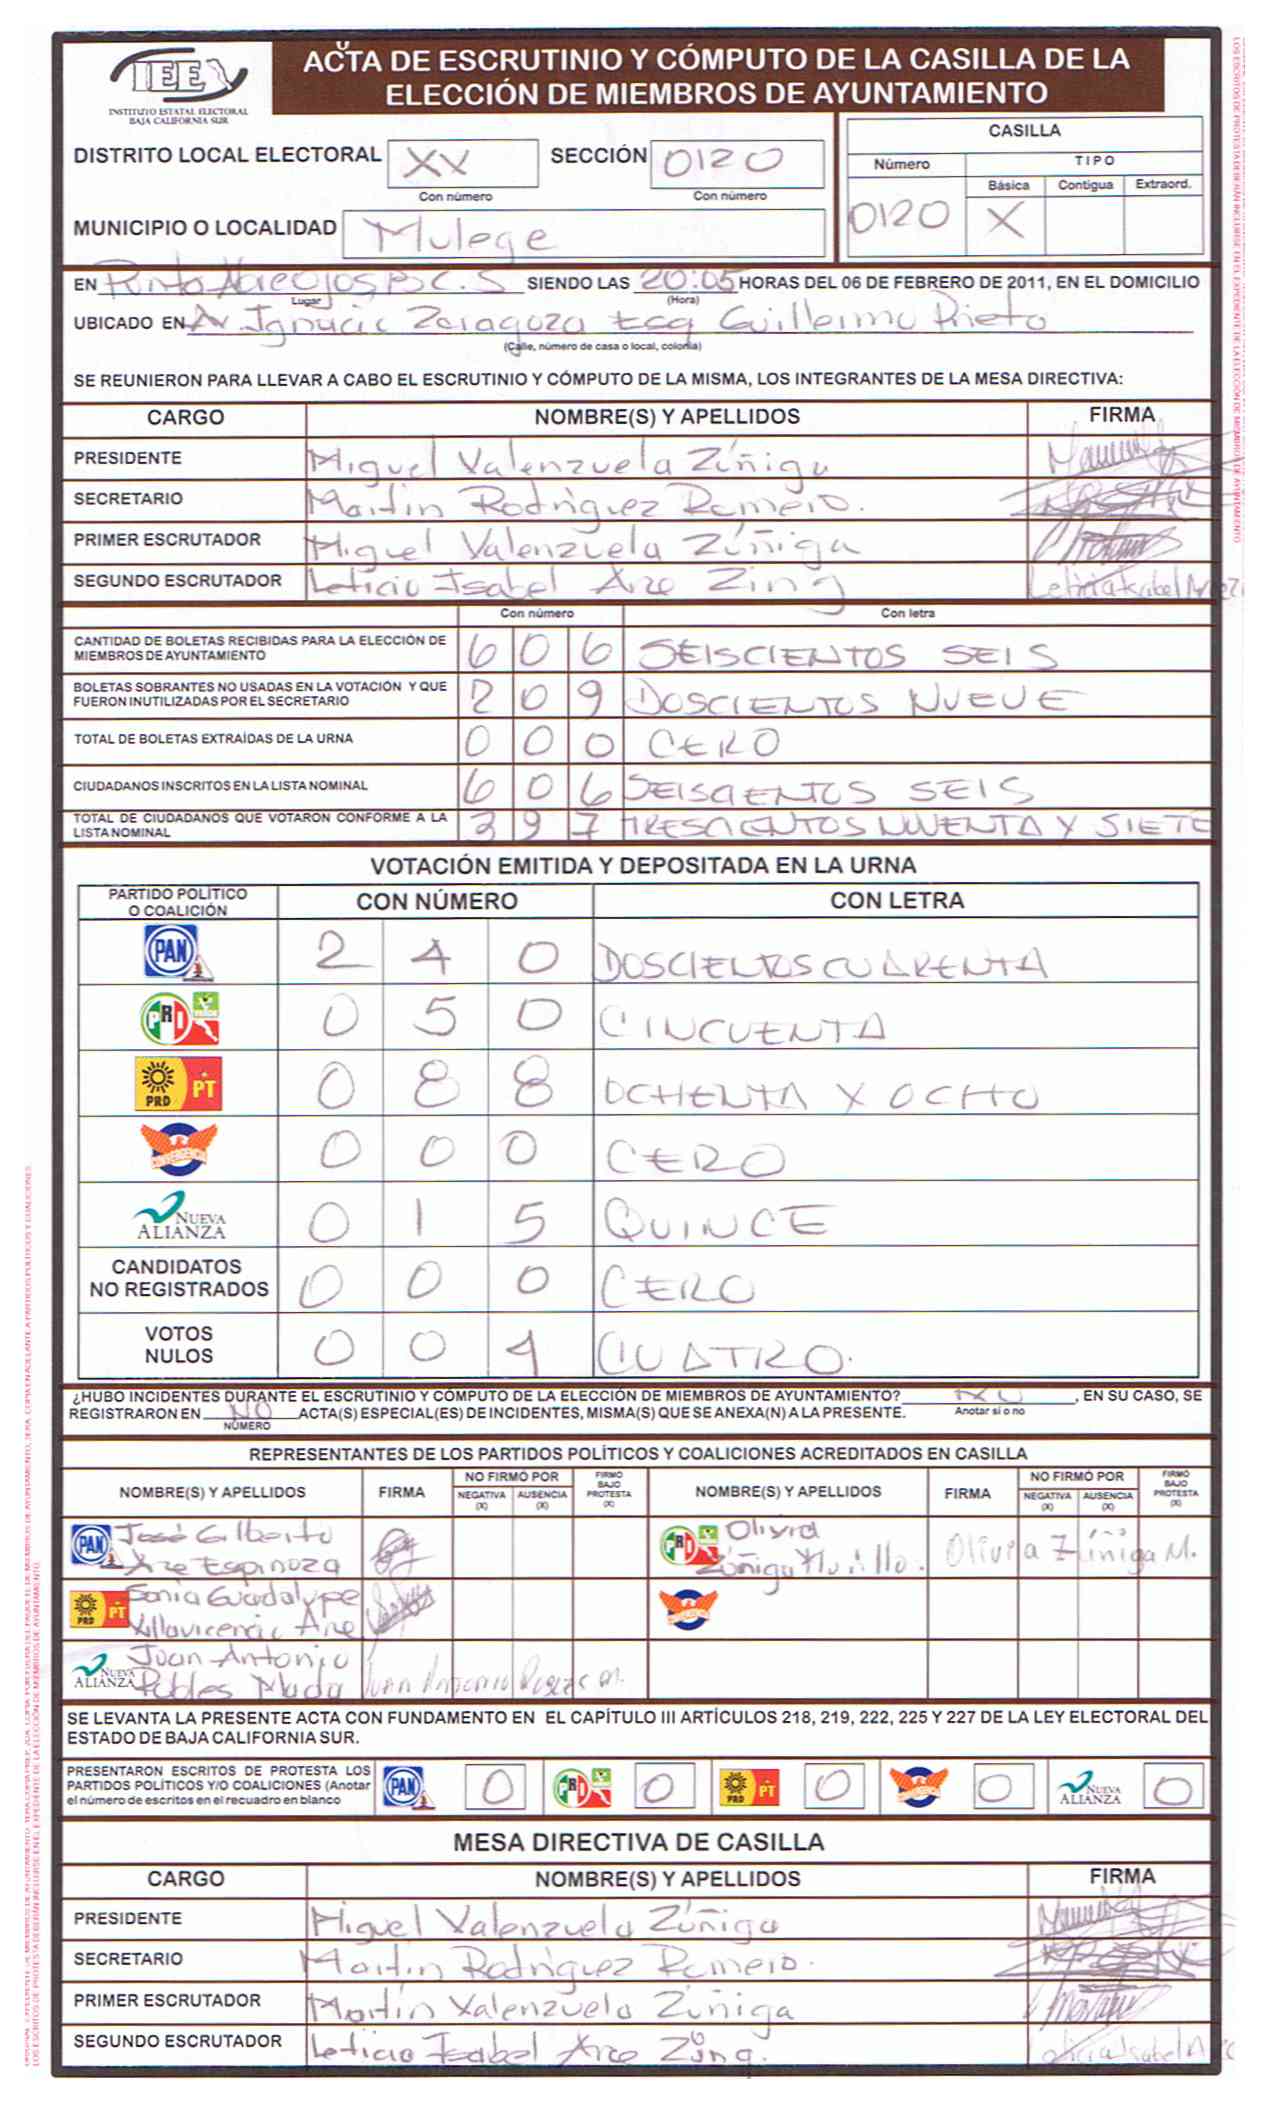 ACTA DE ESCRUTINIO Y CÓMPUTO DE LA CASILLA DE LA
ELECCIÓN DE MIEMBROS DE AYUNTAMIENTO
IEE
INSTITUTO ESTATAL ELECTORAL
BAJA CALIFORNIA SUR
DISTRITO LOCAL ELECTORAL XX SECCIÓN 0120
Con número Con número
MUNICIPIO O LOCALIDAD Mulege
CASILLA
Número TIPO
Básica Contigua Extraord.
0120 X
EN Punta Abreojos B.C.S SIENDO LAS 20:05 HORAS DEL 06 DE FEBRERO DE 2011, EN EL DOMICILIO
Lugar (Hora)
UBICADO EN Av. Ignacio Zaragoza Esq Guillermo Prieto
(Calle, número de casa o local, colonia)
SE REUNIERON PARA LLEVAR A CABO EL ESCRUTINIO Y CÓMPUTO DE LA MISMA, LOS INTEGRANTES DE LA MESA DIRECTIVA:
CARGO NOMBRE(S) Y APELLIDOS FIRMA
PRESIDENTE Miguel Valenzuela Zúñiga
SECRETARIO Martin Rodriguez Romero.
PRIMER ESCRUTADOR Miguel Valenzuela Zúñiga
SEGUNDO ESCRUTADOR Leticia Isabel Arce Zing
Con número Con letra
CANTIDAD DE BOLETAS RECIBIDAS PARA LA ELECCIÓN DE
MIEMBROS DE AYUNTAMIENTO 6 0 6 SEISCIENTOS SEIS
BOLETAS SOBRANTES NO USADAS EN LA VOTACIÓN Y QUE
FUERON INUTILIZADAS POR EL SECRETARIO 2 0 9 DOSCIENTOS NUEVE
TOTAL DE BOLETAS EXTRAÍDAS DE LA URNA 0 0 0 CERO
CIUDADANOS INSCRITOS EN LA LISTA NOMINAL 6 0 6 SEISCIENTOS SEIS
TOTAL DE CIUDADANOS QUE VOTARON CONFORME A LA
LISTA NOMINAL 3 9 7 TRESCIENTOS NOVENTA Y SIETE
VOTACIÓN EMITIDA Y DEPOSITADA EN LA URNA
PARTIDO POLÍTICO
O COALICIÓN CON NÚMERO CON LETRA
PAN 2 4 0 DOSCIENTOS CUARENTA
PRI VERDE 0 5 0 CINCUENTA
PRD PT 0 8 8 OCHENTA Y OCHO
CONVERGENCIA 0 0 0 CERO
NUEVA ALIANZA 0 1 5 QUINCE
CANDIDATOS
NO REGISTRADOS 0 0 0 CERO
VOTOS
NULOS 0 0 4 CUATRO.
¿HUBO INCIDENTES DURANTE EL ESCRUTINIO Y CÓMPUTO DE LA ELECCIÓN DE MIEMBROS DE AYUNTAMIENTO? NO, EN SU CASO, SE
REGISTRARON EN NO ACTA(S) ESPECIAL(ES) DE INCIDENTES, MISMA(S) QUE SE ANEXA(N) A LA PRESENTE. Anotar sí o no
NÚMERO
REPRESENTANTES DE LOS PARTIDOS POLÍTICOS Y COALICIONES ACREDITADOS EN CASILLA
NOMBRE(S) Y APELLIDOS FIRMA NO FIRMÓ POR NEGATIVA (X) AUSENCIA (X) FIRMÓ BAJO PROTESTA (X) NOMBRE(S) Y APELLIDOS FIRMA NO FIRMÓ POR NEGATIVA (X) AUSENCIA (X) FIRMÓ BAJO PROTESTA (X)
PAN José Gilberto PRI Olivia
Arce Espinoza Zúñiga Murillo. Olivia Zúñiga M.
PRD PT Sonia Guadalupe CONVERGENCIA
Villavicencio Arce
NUEVA ALIANZA Juan Antonio
Robles Juan Antonio
SE LEVANTA LA PRESENTE ACTA CON FUNDAMENTO EN EL CAPÍTULO III ARTÍCULOS 218, 219, 222, 225 Y 227 DE LA LEY ELECTORAL DEL
ESTADO DE BAJA CALIFORNIA SUR.
PRESENTARON ESCRITOS DE PROTESTA LOS
PARTIDOS POLÍTICOS Y/O COALICIONES (Anotar
el número de escritos en el recuadro en blanco
PAN 0 PRI 0 PRD PT 0 CONVERGENCIA 0 NUEVA ALIANZA 0
MESA DIRECTIVA DE CASILLA
CARGO NOMBRE(S) Y APELLIDOS FIRMA
PRESIDENTE Miguel Valenzuela Zúñiga
SECRETARIO Martin Rodriguez Romero.
PRIMER ESCRUTADOR Martin Valenzuela Zúñiga
SEGUNDO ESCRUTADOR Leticia Isabel Arce Zúng.